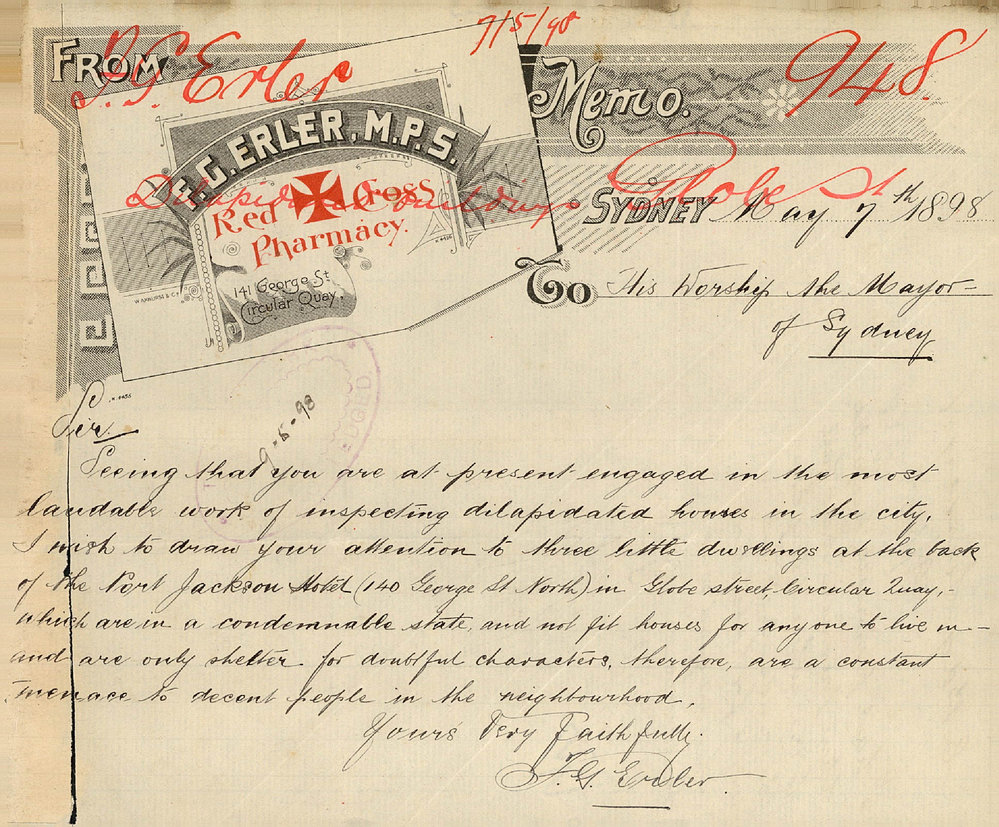 7/5/98
F.G. Erler
948
FROM
Memo.
F. G. ERLER, M.P.S.
Red Cross
Pharmacy.
141 George St
Circular Quay.
Dilapidated buildings Globe St
SYDNEY May 7th 1898
To His Worship the Mayor
of Sydney
9-5-98
Sir
Seeing that you are at present engaged in the most
laudable work of inspecting dilapidated houses in the city,
I wish to draw your attention to three little dwellings at the back
of the Port Jackson Hotel (140 George St North) in Globe street, Circular Quay,-
which are in a condemnable state, and not fit houses for anyone to live in -
and are only shelter for doubtful characters, therefore, are a constant
menace to decent people in the neighbourhood.
Yours Very Faithfully.
F. G. Erler.